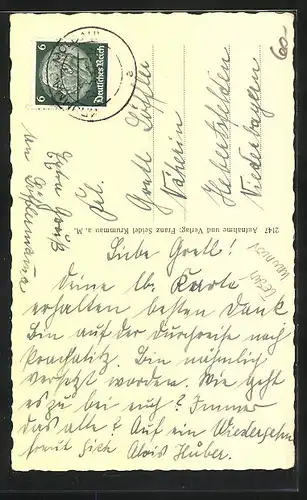 60
6
Deutsches Reich
6
Frl.
Gretl Löffler
Näherin
Hebertsfelden
Niederbayern
2147 Aufnahme und Verlag: Franz Seidel Krummau a. M.
Liebe Gretl!
Deine lb. Karte
erhalten besten Dank
bin auf der Durchreise nach
Prachatitz. Bin nähmlich
versetzt worden. Wie geht
es zu bei euch? Immer
das alte? Auf ein Wiedersehn
freut sich Alois Huber.